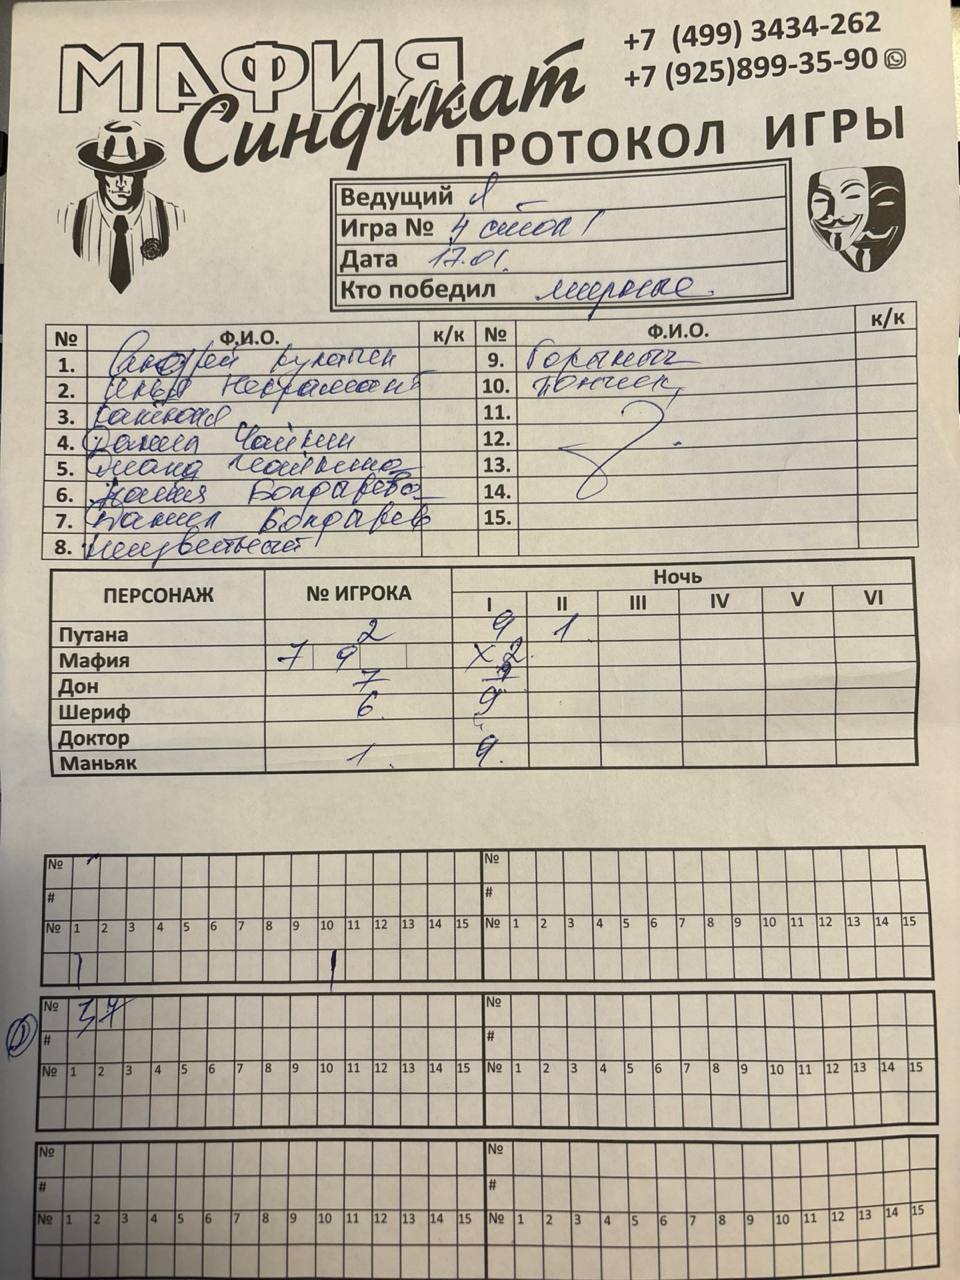 МАФИЯ
Синдикат
+7 (499) 3434-262
+7 (925)899-35-90
ПРОТОКОЛ ИГРЫ
Ведущий Я
Игра № 4 стол 1
Дата 17.01.
Кто победил мирные.
№ Ф.И.О. к/к № Ф.И.О. к/к
1. Андрей 9. Горыныч
2. Илья Некромант 10. Пончик
3. 11.
4. Данил Чайкин 12.
5. Диана Чайкина 13.
6. Бондарева 14.
7. Данил Бондарев 15.
8. Неизвестный
ПЕРСОНАЖ № ИГРОКА Ночь
I II III IV V VI
Путана 2 9 1
Мафия 7 9 X 2
Дон 7
Шериф 6 9
Доктор
Маньяк 1 9
№ №
# #
№ 1 2 3 4 5 6 7 8 9 10 11 12 13 14 15 № 1 2 3 4 5 6 7 8 9 10 11 12 13 14 15
№ 3 7 №
# #
№ 1 2 3 4 5 6 7 8 9 10 11 12 13 14 15 № 1 2 3 4 5 6 7 8 9 10 11 12 13 14 15
№ №
# #
№ 1 2 3 4 5 6 7 8 9 10 11 12 13 14 15 № 1 2 3 4 5 6 7 8 9 10 11 12 13 14 15